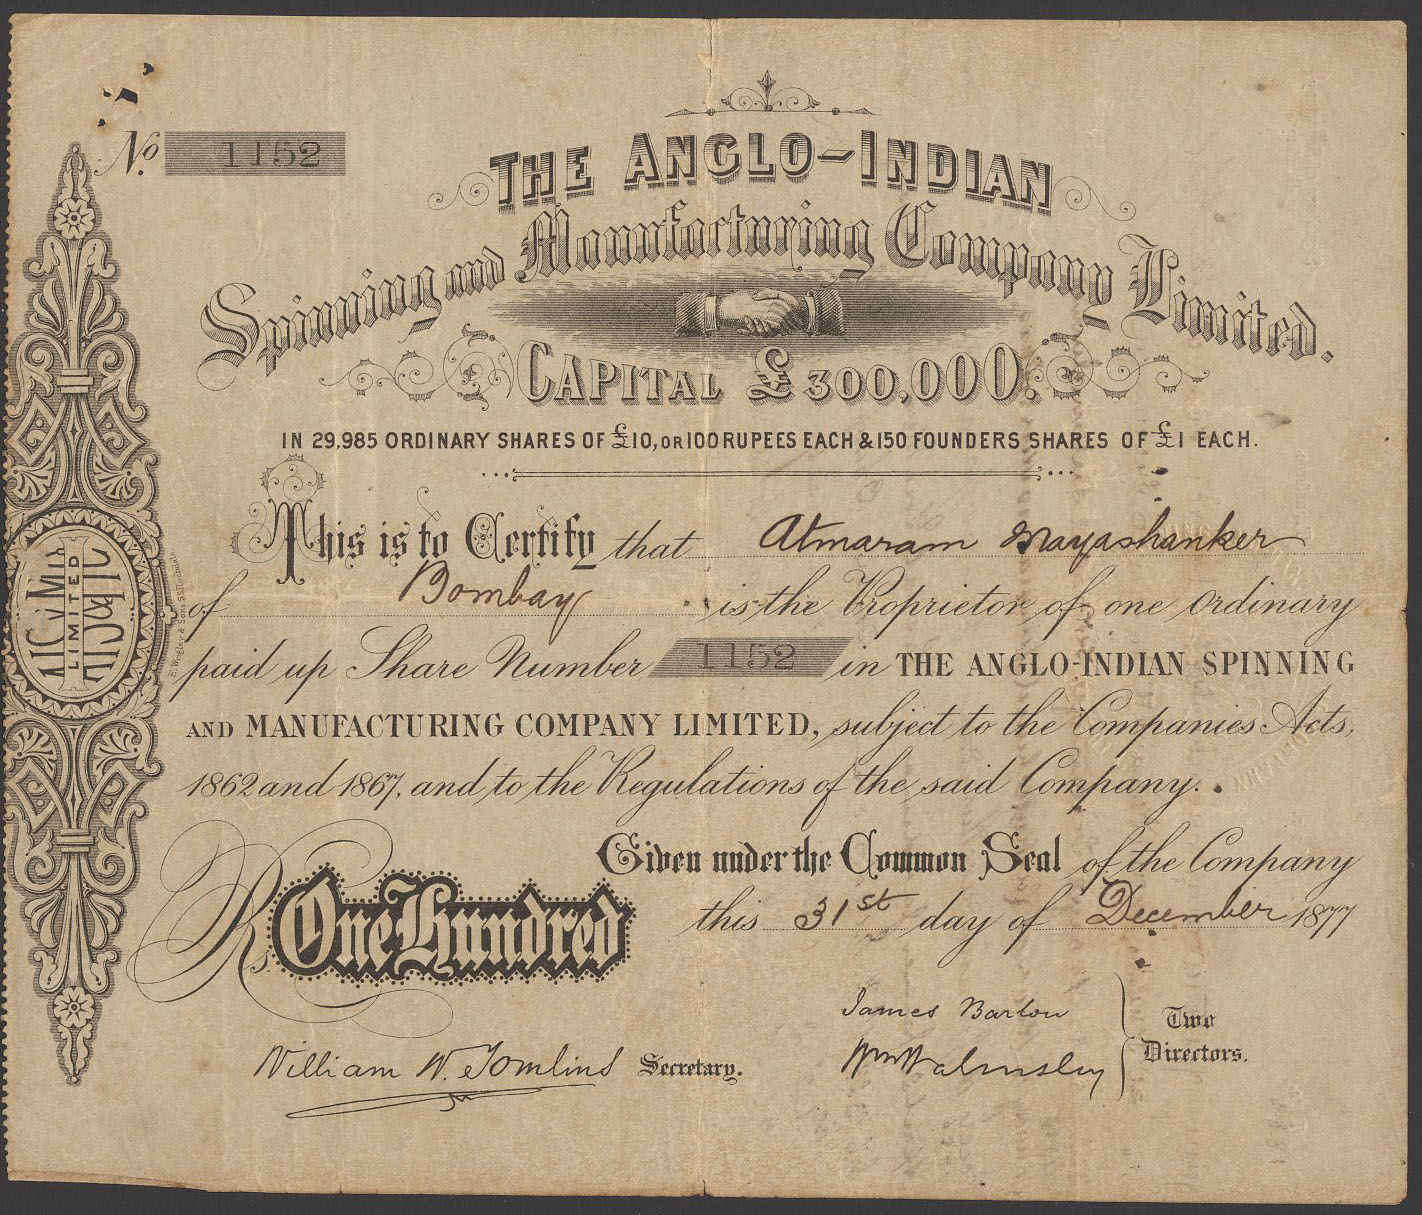 No. 1152
THE ANGLO-INDIAN
Spinning and Manufacturing Company Limited.
CAPITAL £300,000.
IN 29,985 ORDINARY SHARES OF £10, OR 100 RUPEES EACH & 150 FOUNDERS SHARES OF £1 EACH.
This is to Certify that Atmaram Mayashanker
of Bombay is the Proprietor of one Ordinary
paid up Share Number 1152 in THE ANGLO-INDIAN SPINNING
AND MANUFACTURING COMPANY LIMITED, subject to the Companies Acts,
1862 and 1867, and to the Regulations of the said Company.
Given under the Common Seal of the Company
this 31st day of December 1877
Rs. One Hundred
James Barlow
Wm Walmsley
Two Directors.
William W. Tomlins Secretary.
LIMITED